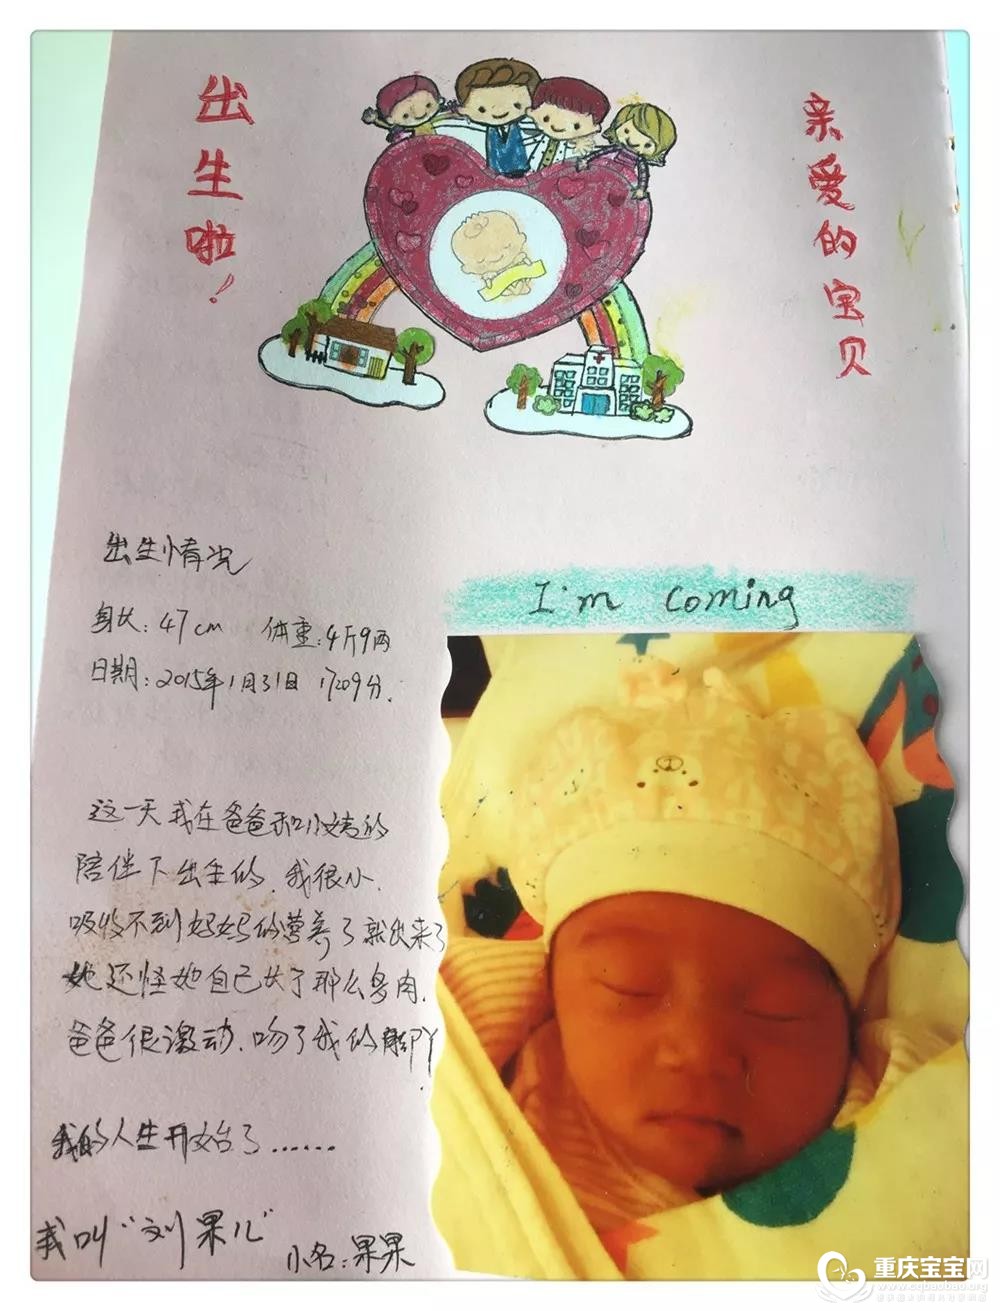 亲爱的宝贝
出生啦！
出生情况
身长：47cm 体重：4斤9两
日期：2015年1月31日
I'm coming
这一天我在爸爸和小姨的
陪伴下出生的，我很小，
吸收不到妈妈的营养了就出来了
她还怪她自己长了那么多肉，
爸爸很激动，吻了我的脚丫
我的人生开始了……
我叫“刘果儿”
小名：果果
重庆宝宝网
www.cqbaobao.org